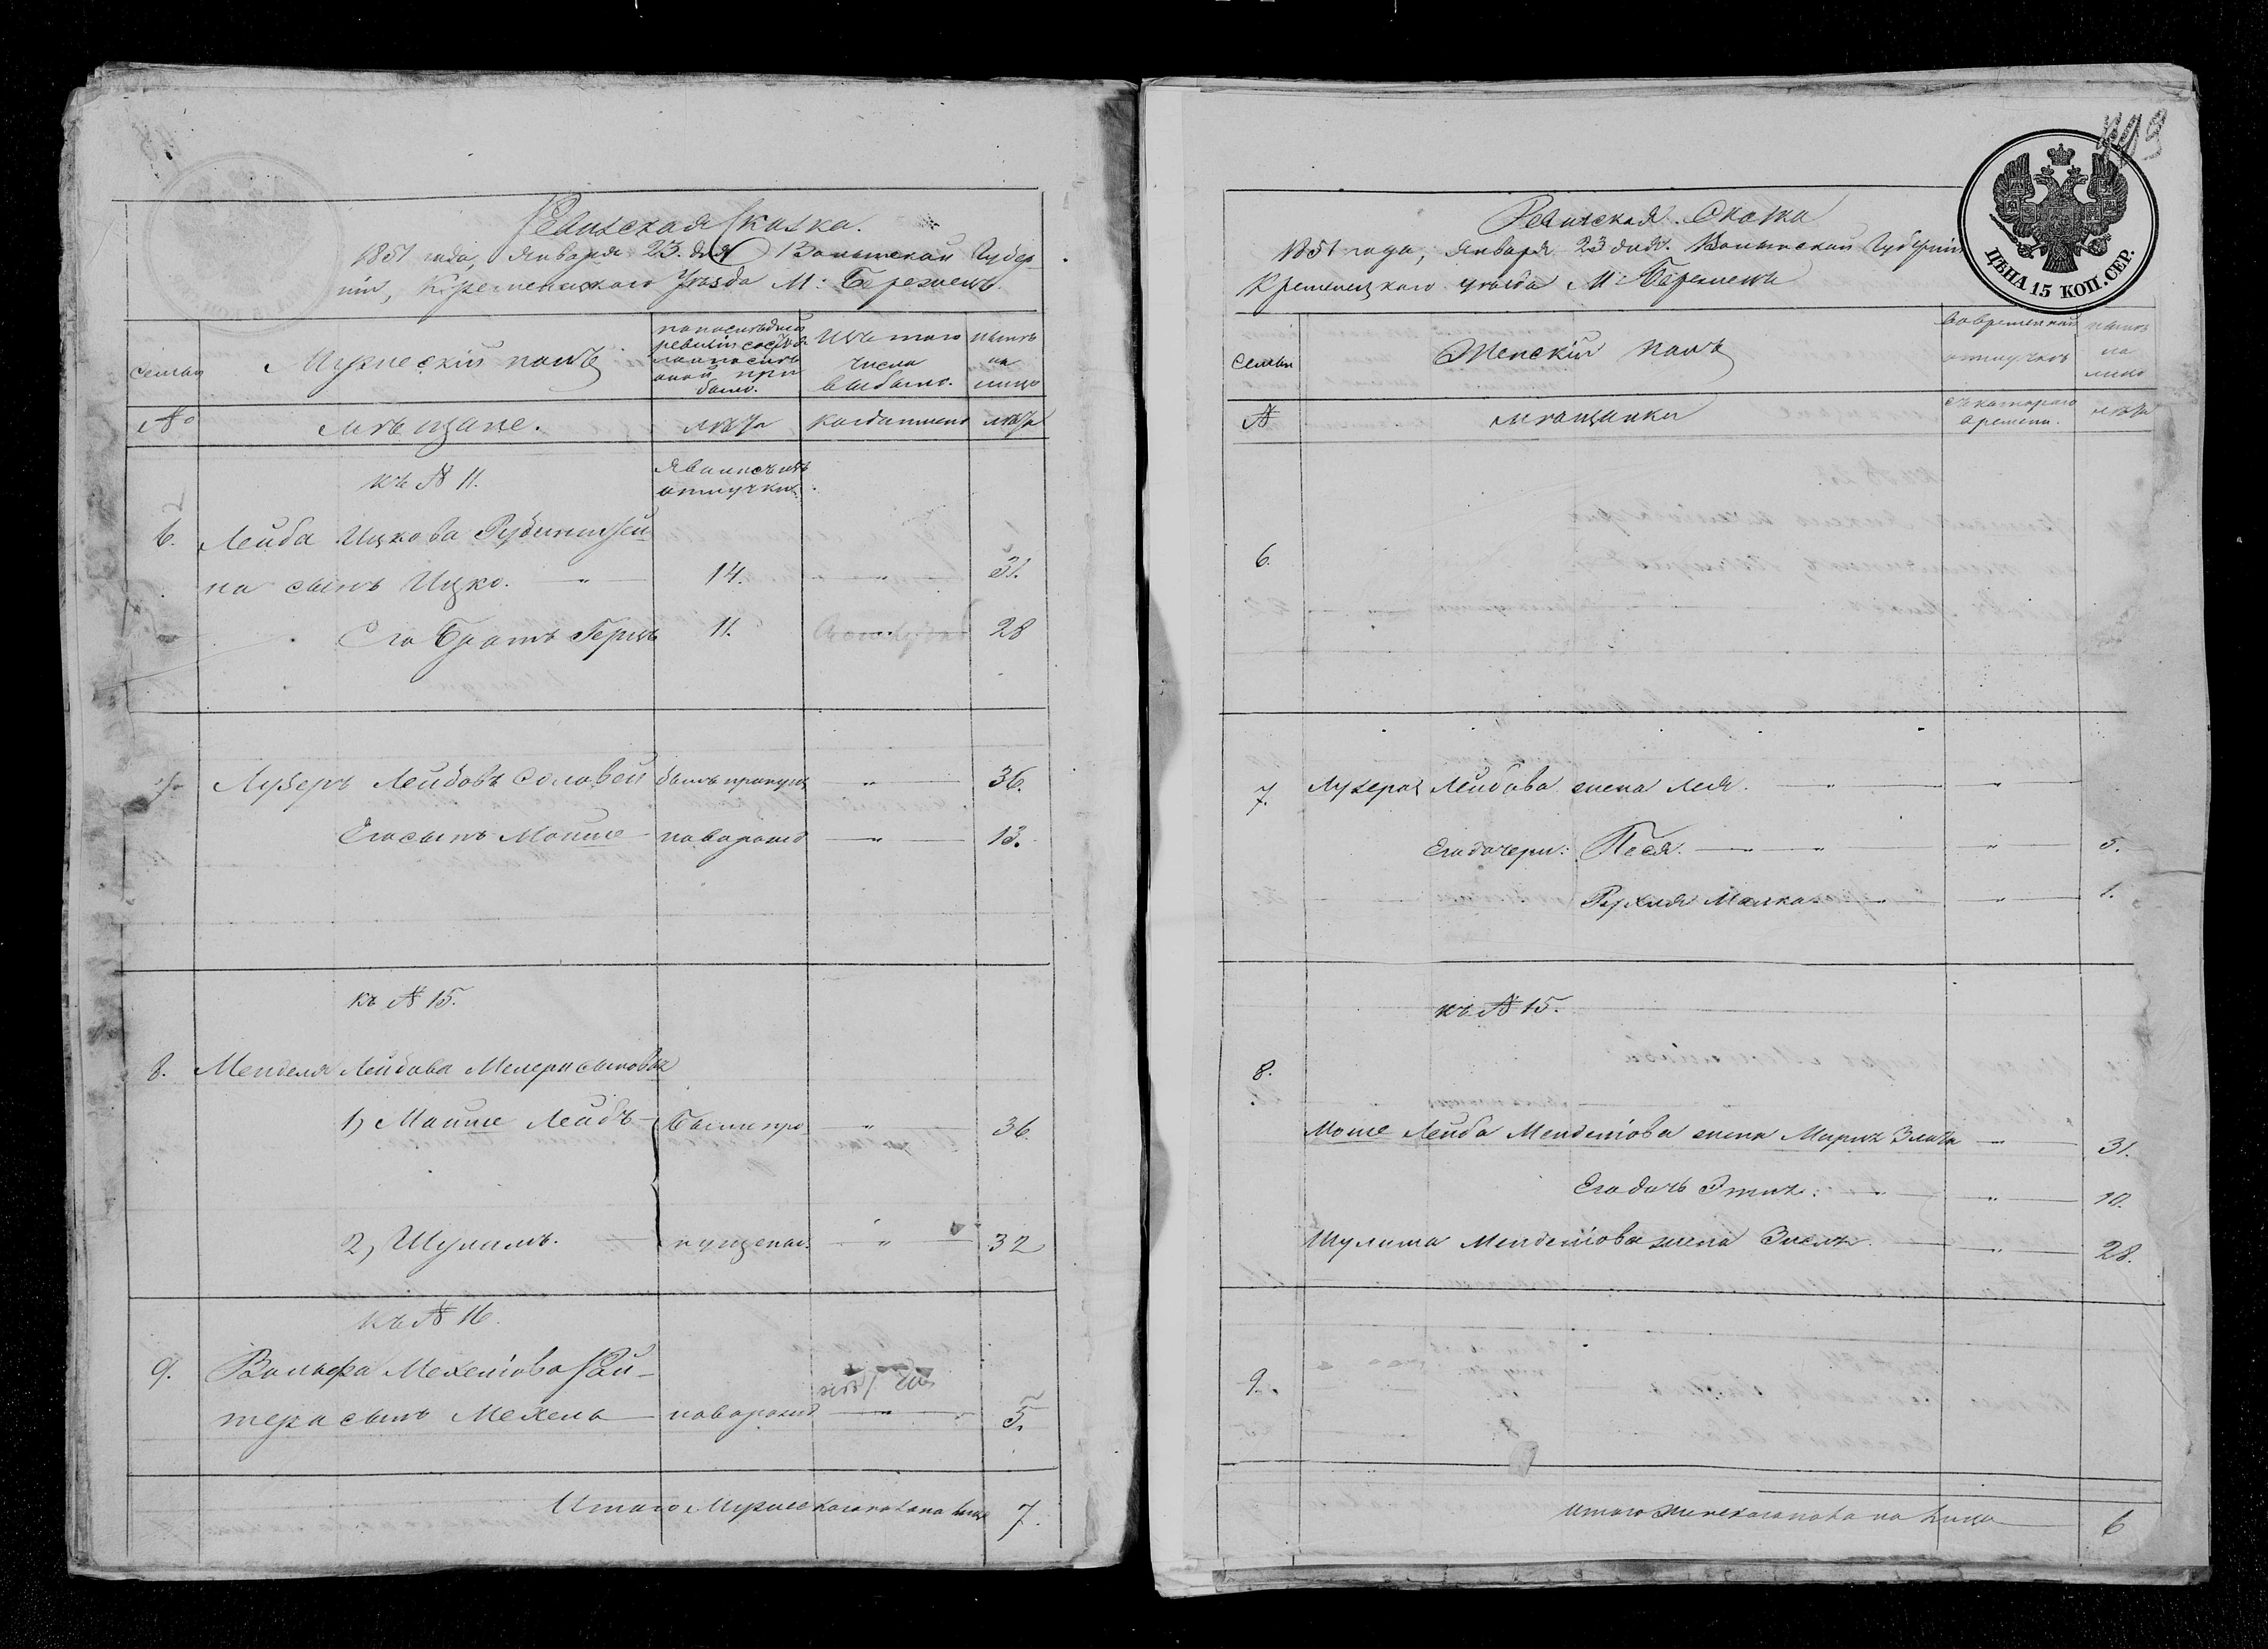 Ревизская Сказка.
1851 года, Января 23. дня Волынской Губер-
нии, Кременецкаго Уезда М: Бережецъ
семьи
Мужескій полъ
по последней ревизіи состоя-
ло и после оной при
было.
Изъ того
числа
выбыло.
ныне
на
лицо
№
мещане.
лета
когда именно
лета
къ № 11.
явились изъ
отлучки
6.
Лейба Ицкова Рубинштей-
на сынъ Ицко. 14. 31.
Его Братъ Гершъ 11. 28
7. Лузеръ Лейбовъ Соловей былъ пропущ 36.
Его сынъ Мошше новорожд 13.
къ № 15.
8. Менделя Лейбова Мелера сыновья
1) Мошше Лейбъ Были про 36.
2) Шулимъ. пущены. 32
къ № 16.
9. Вольфа Мехелiова
тера сынъ Мехель новорожд 5.
Итого Мужескаго пола на лице 7.
Ревизская Сказка
1851 года, Января 23 дня. Волынской Губерніи
Кременецкаго уезда М: Бережецъ
ЦѢНА 15 КОП. СЕР.
семьи
Женскій полъ
во временной
отлучке
ныне
на
лицо
№
мещанки
съ котораго
времени.
лета
6.
7. Лузера Лейбова жена Лея.
Его дочери: Песя. 5.
Рухля Малка 1.
къ № 15.
8.
Моше Лейба Менделiова жена Мирля Злата 31.
Его дочь Этля. 10.
Шулима Менделiова жена 28.
9.
итого женскаго пола на лицо 6